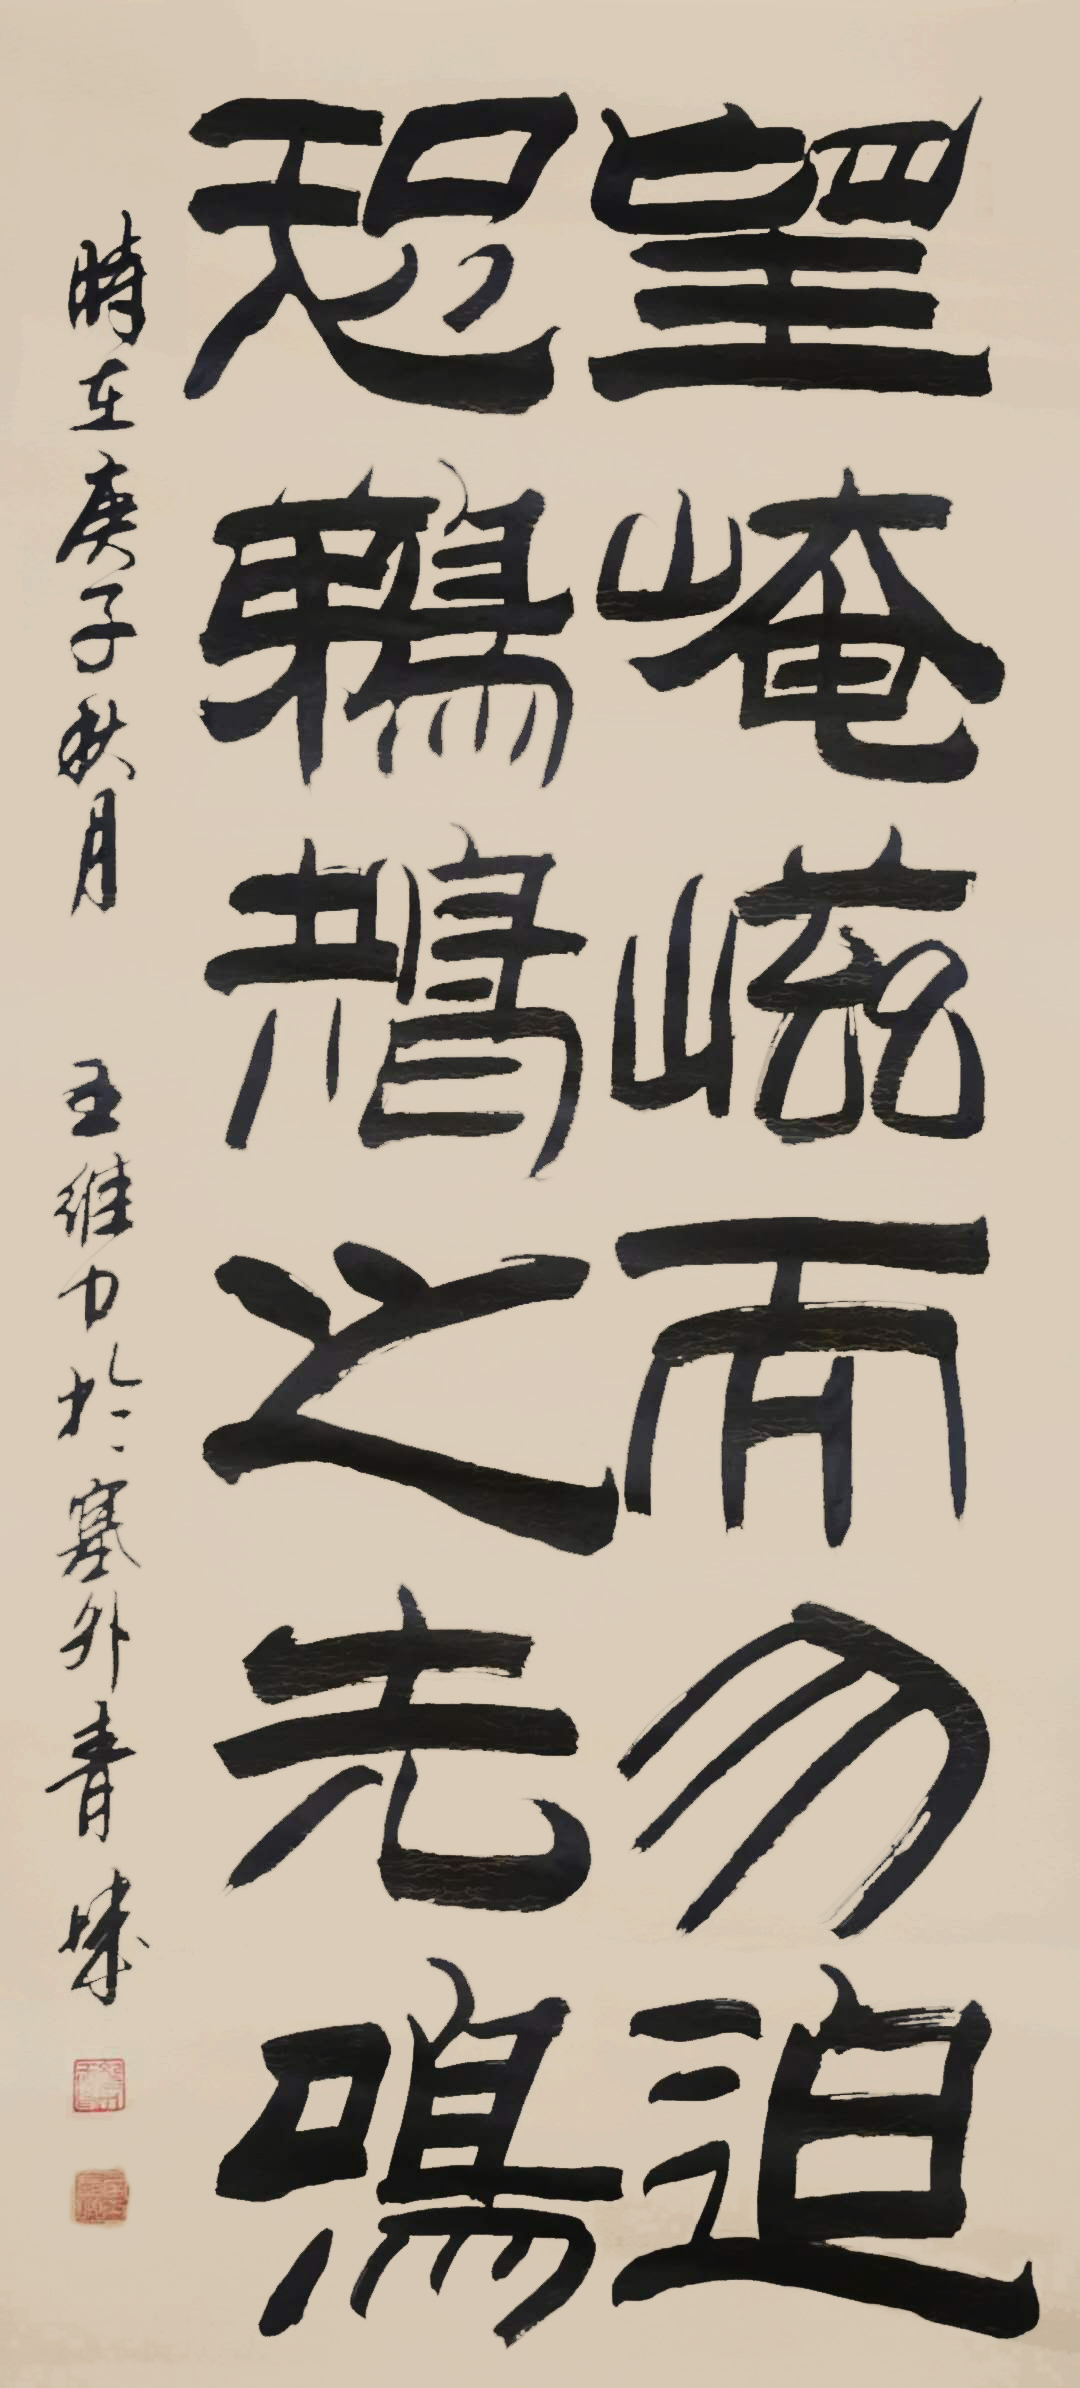 望崦嵫而勿迫
恐鵜鴂之先鳴
時在庚子秋月 王維力於塞外青城